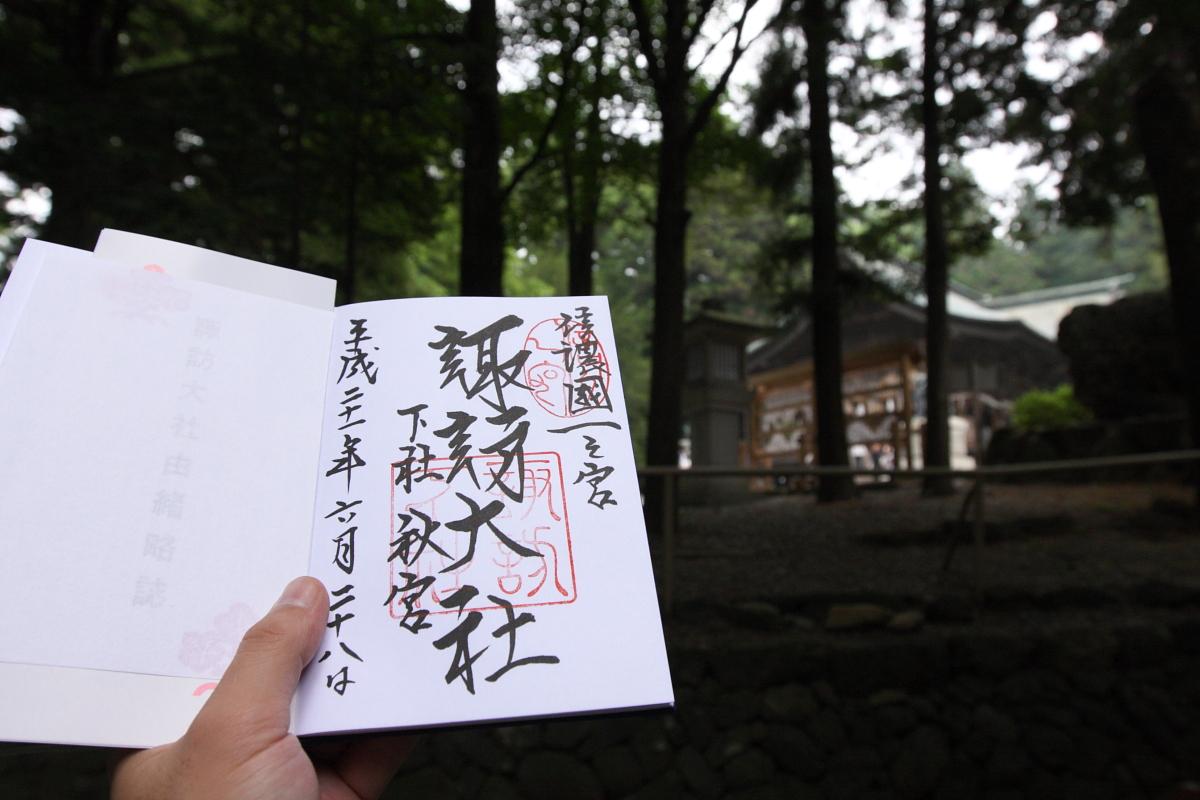 信濃國一之宮
諏訪大社
下社秋宮
平成二十一年六月二十八日
諏訪大社由緒略誌